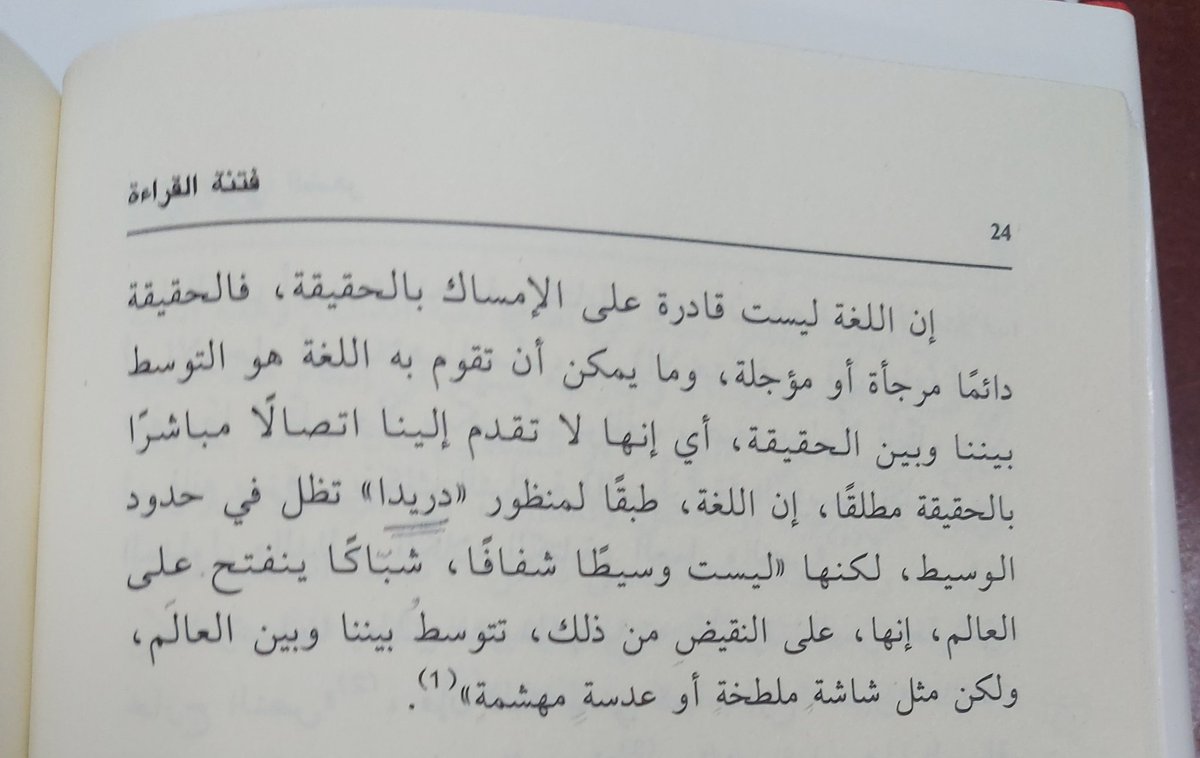 فتنة القراءة
24
إن اللغة ليست قادرة على الإمساك بالحقيقة، فالحقيقة
دائمًا مرجأة أو مؤجلة، وما يمكن أن تقوم به اللغة هو التوسط
بيننا وبين الحقيقة، أي إنها لا تقدم إلينا اتصالًا مباشرًا
بالحقيقة مطلقًا، إن اللغة، طبقًا لمنظور «دريدا» تظل في حدود
الوسيط، لكنها «ليست وسيطًا شفافًا، شبّاكًا ينفتح على
العالم، إنها، على النقيضِ من ذلك، تتوسطُ بيننا وبين العالَم،
ولكن مثل شاشةٍ ملطخةٍ أو عدسةٍ مهشمة»(1).